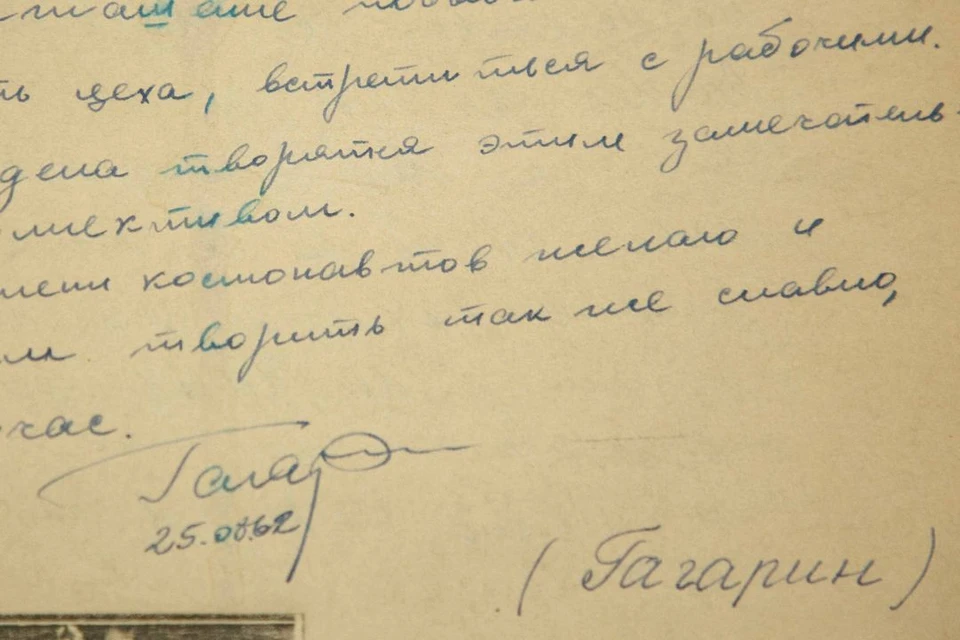 ть цеха, встретиться с рабочими.
дела творятся этим замечатель-
лективом.
мени космонавтов желаю и
м творить так же славно,
час.
Гагар
25.
(Гагарин)